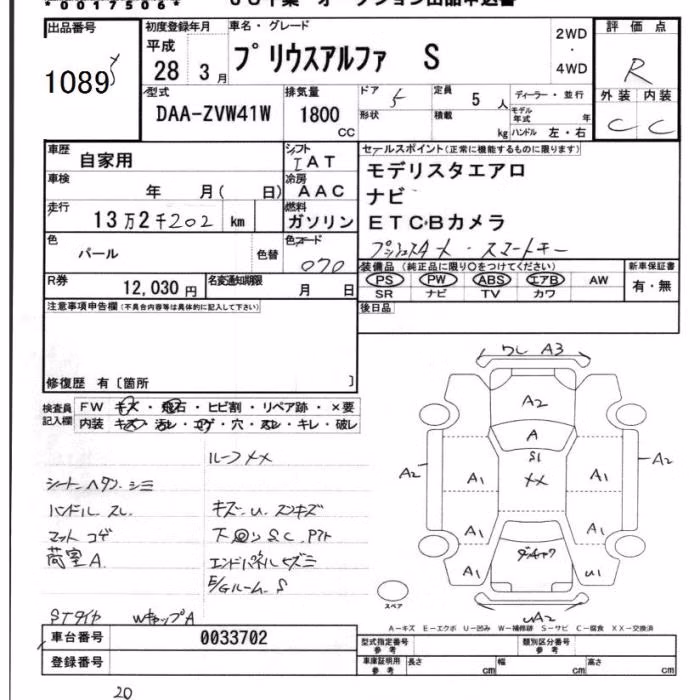 *0017506*
出品番号 初度登録年月 車名・グレード 2WD ・ 4WD 評価点
1089 平成 28 3月 プリウスアルファ S R
型式 排気量 ドア 5 定員 5人 ディーラー・並行 外装 内装
DAA-ZVW41W 1800 CC 形状 積載 kg モデル年式 年 ハンドル 左・右 C C
車歴 自家用 シフト IAT セールスポイント(正常に機能するものに限ります)
車検 年 月( 日) 冷房 AAC モデリスタエアロ
ナビ
走行 13万2千202 km 燃料 ガソリン ETC・Bカメラ
色 パール 色替 色コード 070 プッシュスタート・スマートキー
R券 12,030円 名変通知期限 月 日 装備品(純正品に限り○をつけてください) 新車保証書
PS PW ABS エアB AW 有・無
SR ナビ TV カワ
注意事項申告欄(不具合内容等は具体的に記入して下さい) 後日品
修復歴 有〔箇所 〕
検査員記入欄 FW キズ・飛石・ヒビ割・リペア跡・×要
内装 キズ・汚レ・コゲ・穴・スレ・キレ・破レ
ワレ A3
A2
A
S1
XX
A2 A1 A1 A2
A1 A1
A1 U1
A2
ルーフXX
シート.ヘタリ.シミ
ハンドル スレ キズ.U.スリキズ
マット コゲ 下回りS.C.Pアト
荷室A. エンドパネルヒズミ
E/Gルーム.S
スペア
STタイヤ WキャップA
A-キズ E-エクボ U-凹み W-補修跡 S-サビ C-腐食 XX-交換済
車台番号 0033702 型式指定番号 参考 類別区分番号 参考
登録番号 車庫証明用 参考 長さ cm 幅 cm 高さ cm
20